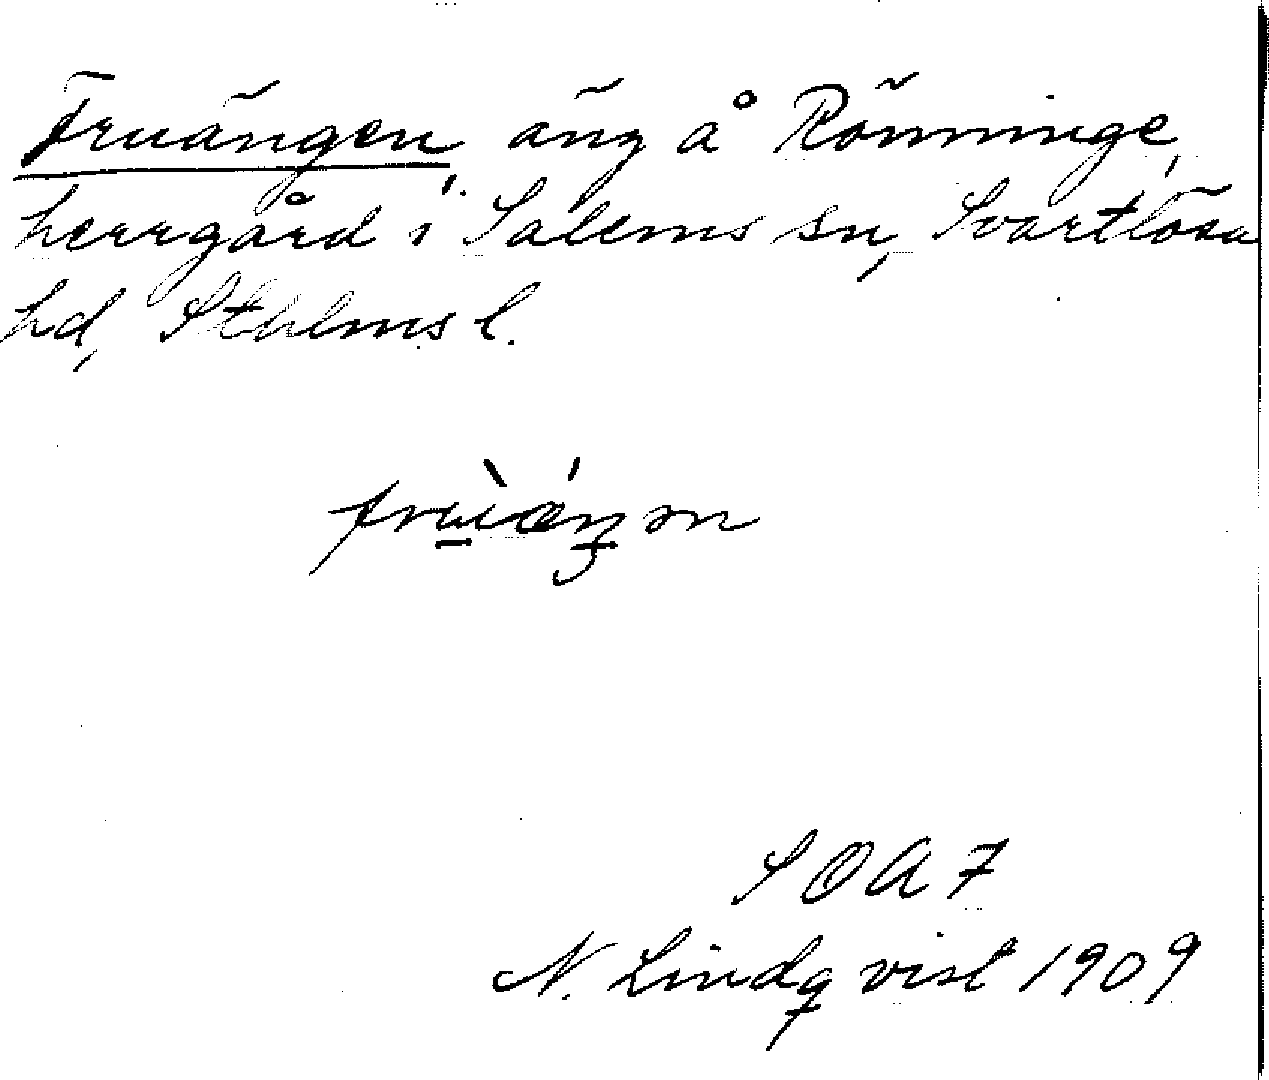 Fruängen, äng å Rönninge,
herrgård i Salems sn, Svartlösa
hd, Sthlms l.
SOA 7
N. Lindqvist 1909